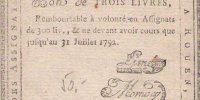 Bon de TROIS LIVRES,
Remboursable à volonté, en Assignats
de 300 liv., & ne devant avoir cours que
jusqu'au 31 Juillet 1792.
50.
ES ASSIGNA
A ROUEN,